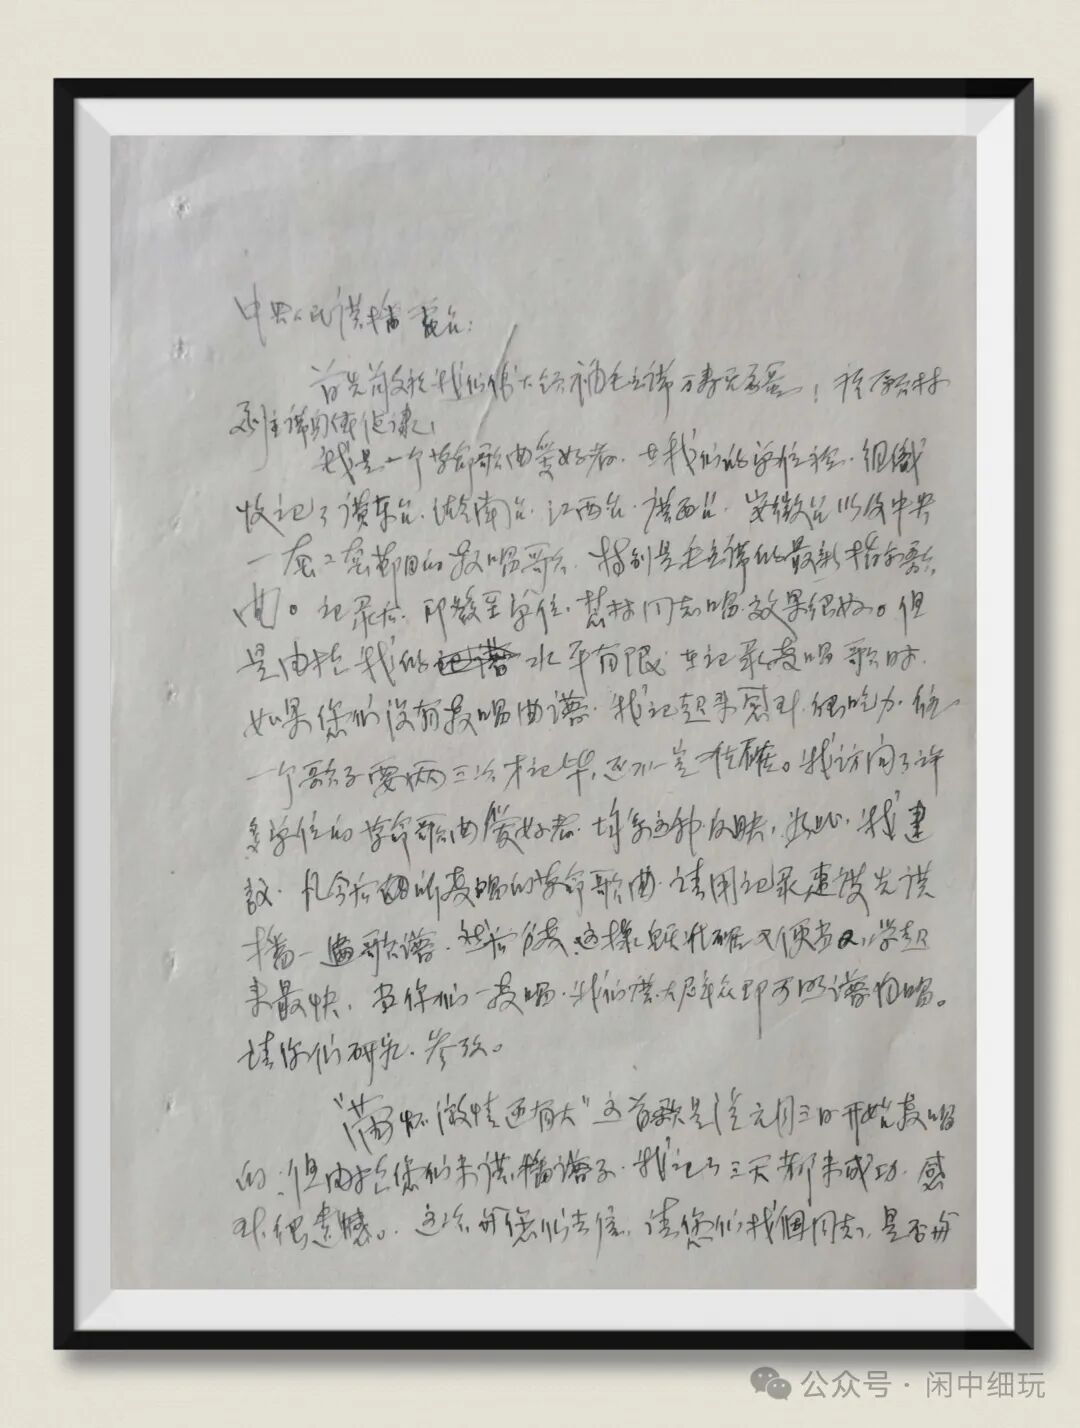 中央人民广播电台：
首先敬祝我们伟大领袖毛主席万寿无疆！祝愿林
副主席身体健康！
我是一个革命歌曲爱好者．在我们的单位里．组织
收记了广东台．江西台．广西台．安徽台以及中央
一套二套节目的教唱歌．特别是毛主席的最新指示歌
曲。记录后．即教至单位．同志唱．效果很好。但
是由于我的水平有限．在记录教唱歌时．
如果您们没有教唱曲谱．我记起来感到很吃力．往
一个歌子要两三次才记毕，还不一定准确。我访问了许
多单位的革命歌曲爱好者．都有这种反映，为此．我建
议．凡今后所教唱的革命歌曲．请用记录速度先广
播一遍歌谱．然后分教．这样既准确又便当，学起
来最快，当你们一教唱．我们广大群众即可照谱习唱。
请你们研究．参考。
“满怀激情迎九大”这首歌是从元月三日开始教唱
的，但由于您们未广播谱子．我记了三天都未成功．感
到很遗憾。这次给您们去信，请您们找个同志，是否再
公众号 · 闲中细玩